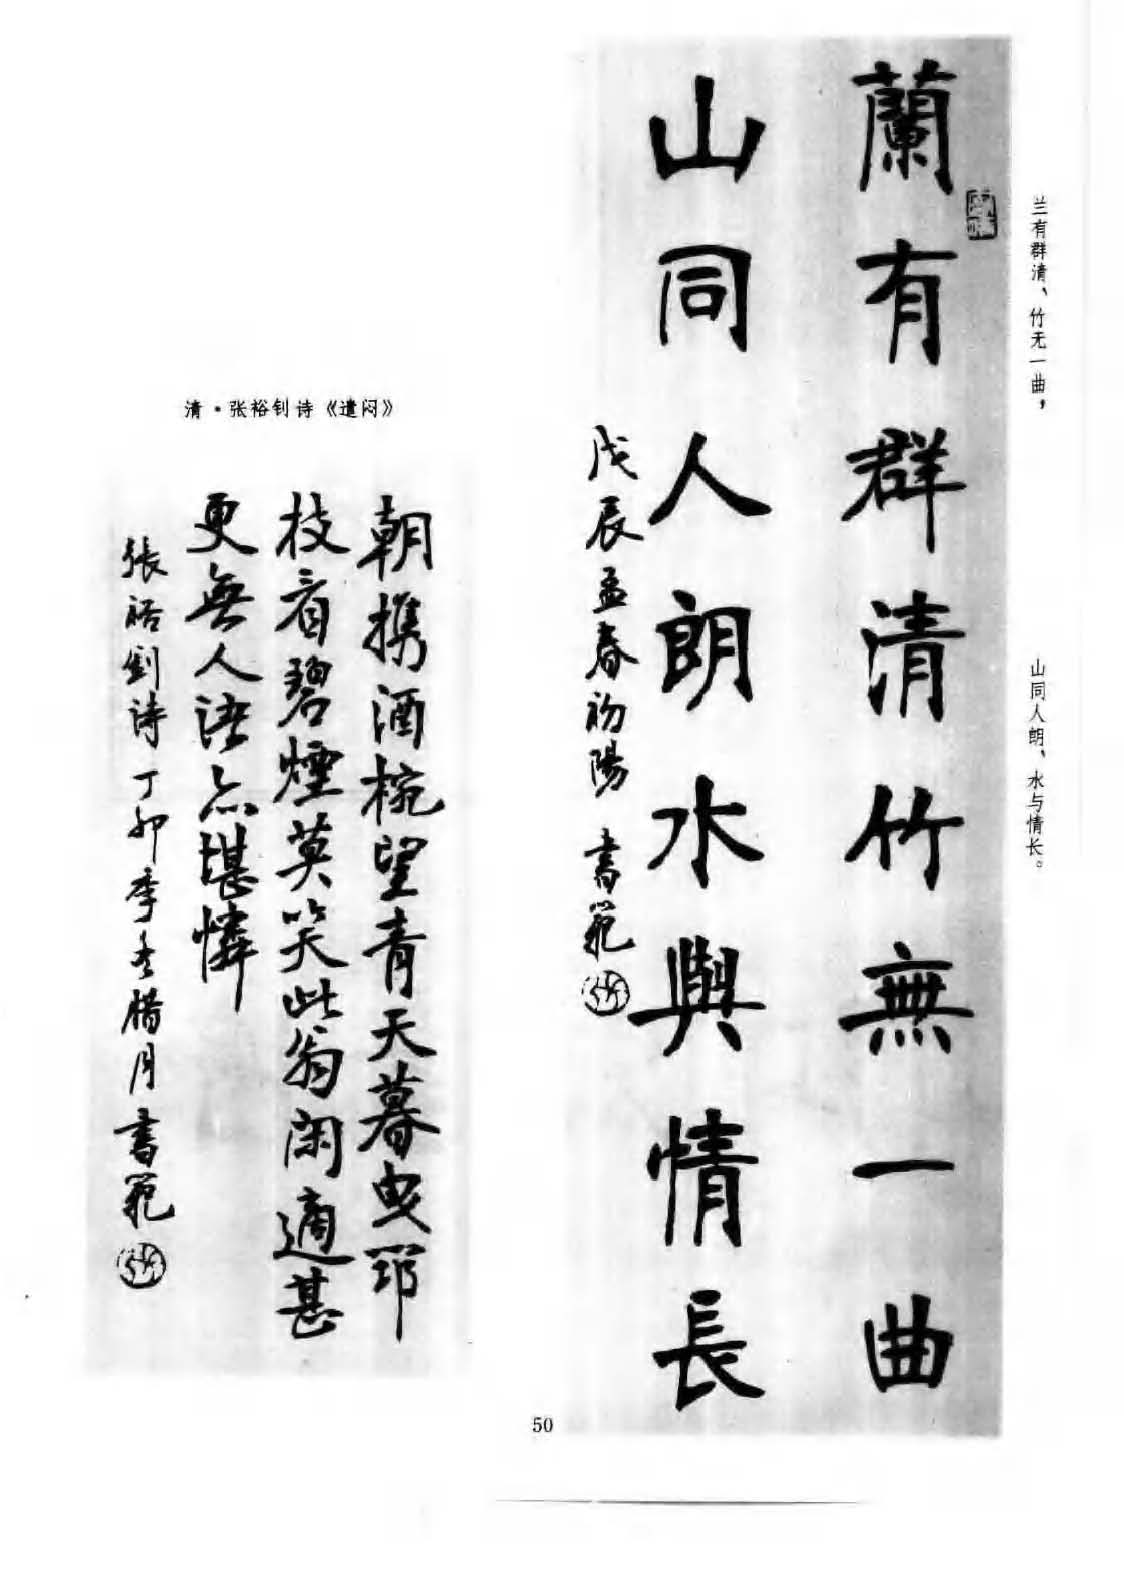 兰有群清、竹无一曲，
山同人朗、水与情长。
蘭有群清竹無一曲
山同人朗水與情長
戊辰孟春初陽 書範
清·张裕钊诗《遣闷》
朝携酒椀望青天暮曳邛
枝看碧煙莫笑此翁閑適甚
更無人語亦堪憐
張裕釗詩丁卯季冬腊月書範
50